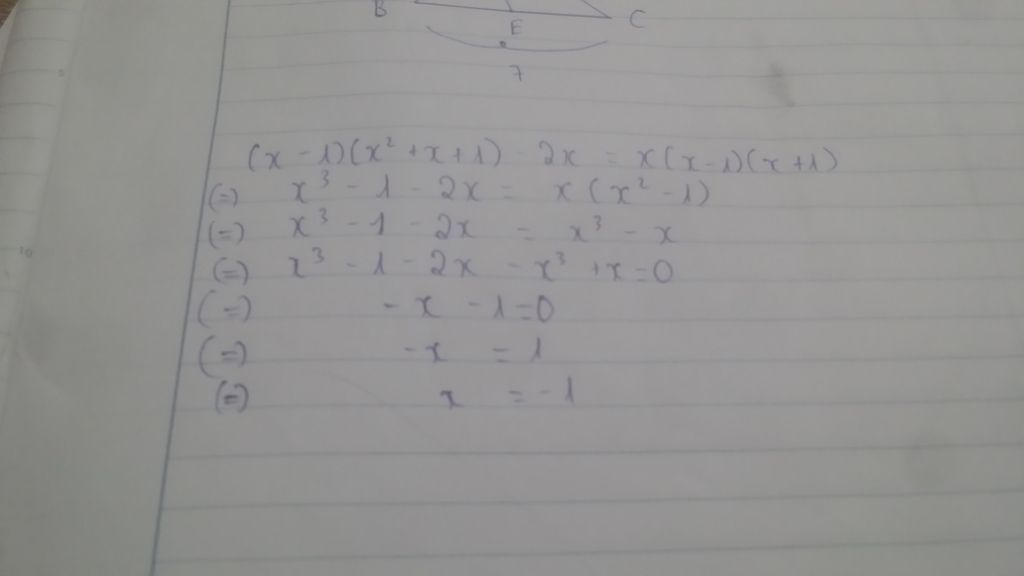 B
E
C
7
(x - 1)(x² + x + 1) - 2x = x(x-1)(x+1)
(=) x³ - 1 - 2x = x(x² - 1)
(=) x³ - 1 - 2x = x³ - x
(=) x³ - 1 - 2x - x³ + x = 0
(=) - x - 1 = 0
(=) - x = 1
(=) x = -1
10